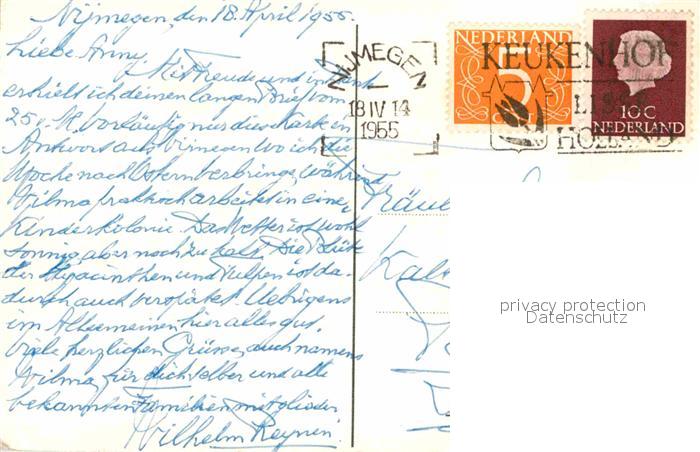 Nijmegen, den 18. April 1955.
Liebe Anny,
Mit Freude und in Dank
erhielt ich deinen langen Brief vom
25. M. Vorläufig nur diese Karte in
Antwort aus Nijmegen wo ich die
Woche nach Ostern verbringe, während
Wilma prakt. arbeitet in eine
Kinderkolonie. Das Wetter ist wohl
sonnig, aber noch zu kalt. Die Blüte
der Hyacinthen und Tulpen ist da-
durch auch verspätet. Uebrigens
im Allgemeinen hier alles gut.
Viele herzlichen Grüsse, auch namens
Wilma, für dich selber und alle
bekannten Familienmitglieder
Wilhelm Reynen.
NIJMEGEN
18 IV 14
1955
NEDERLAND
5
KEUKENHOF
LISSE
HOLLAND
10C
NEDERLAND
Fräul
Kal
privacy protection
Datenschutz